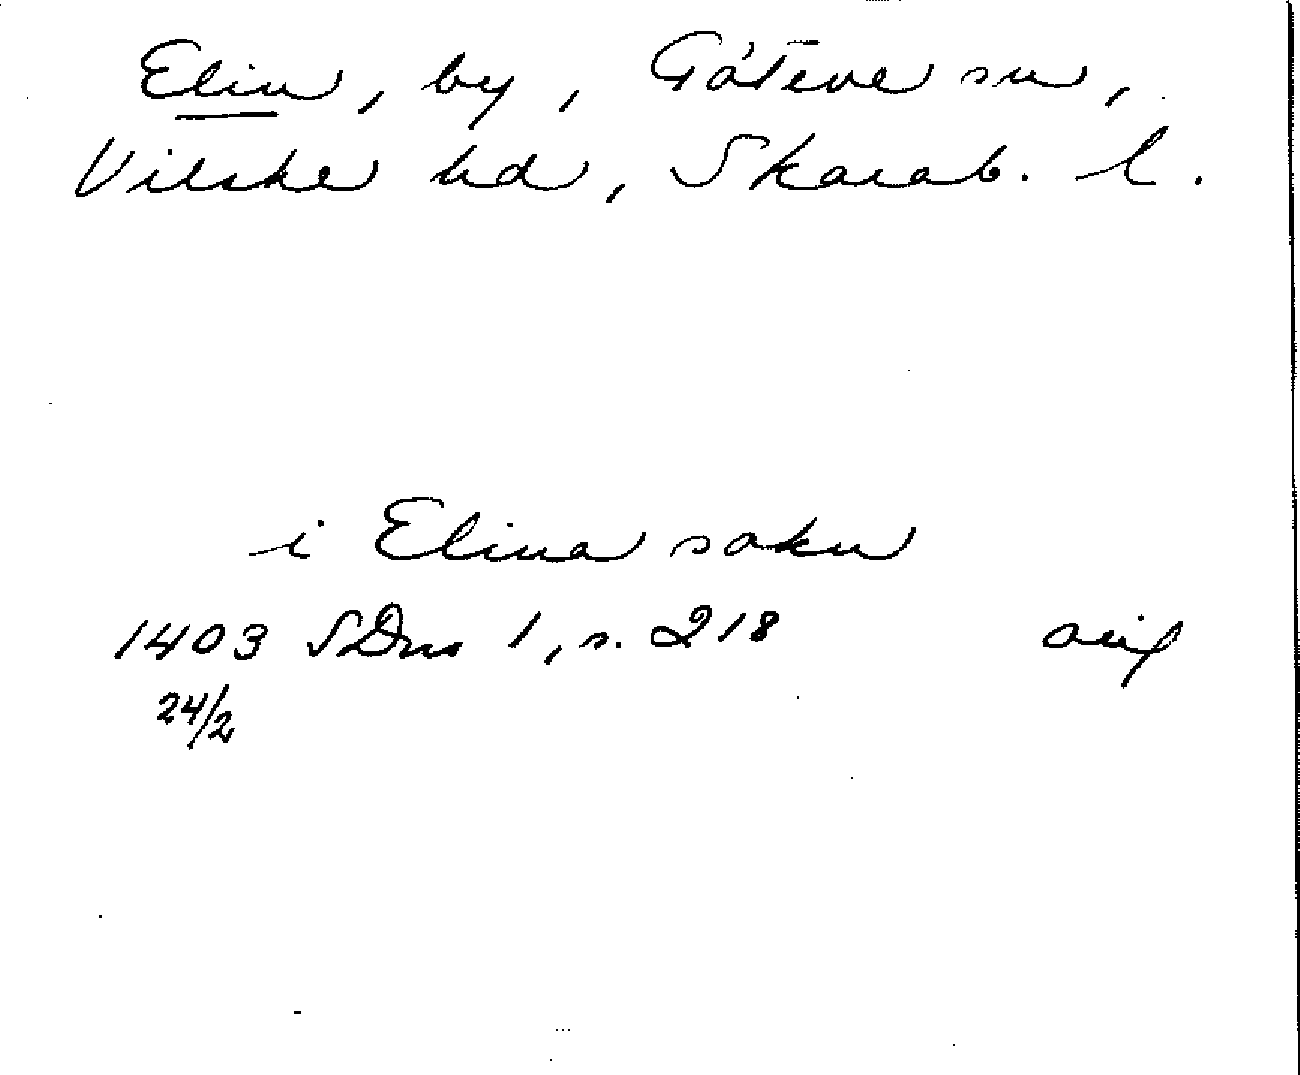 Elin, by, Gåteve sn,
Vilske hd, Skarab. l.
i Elina sokn
1403 SDns 1, s. 218 orig
24/2